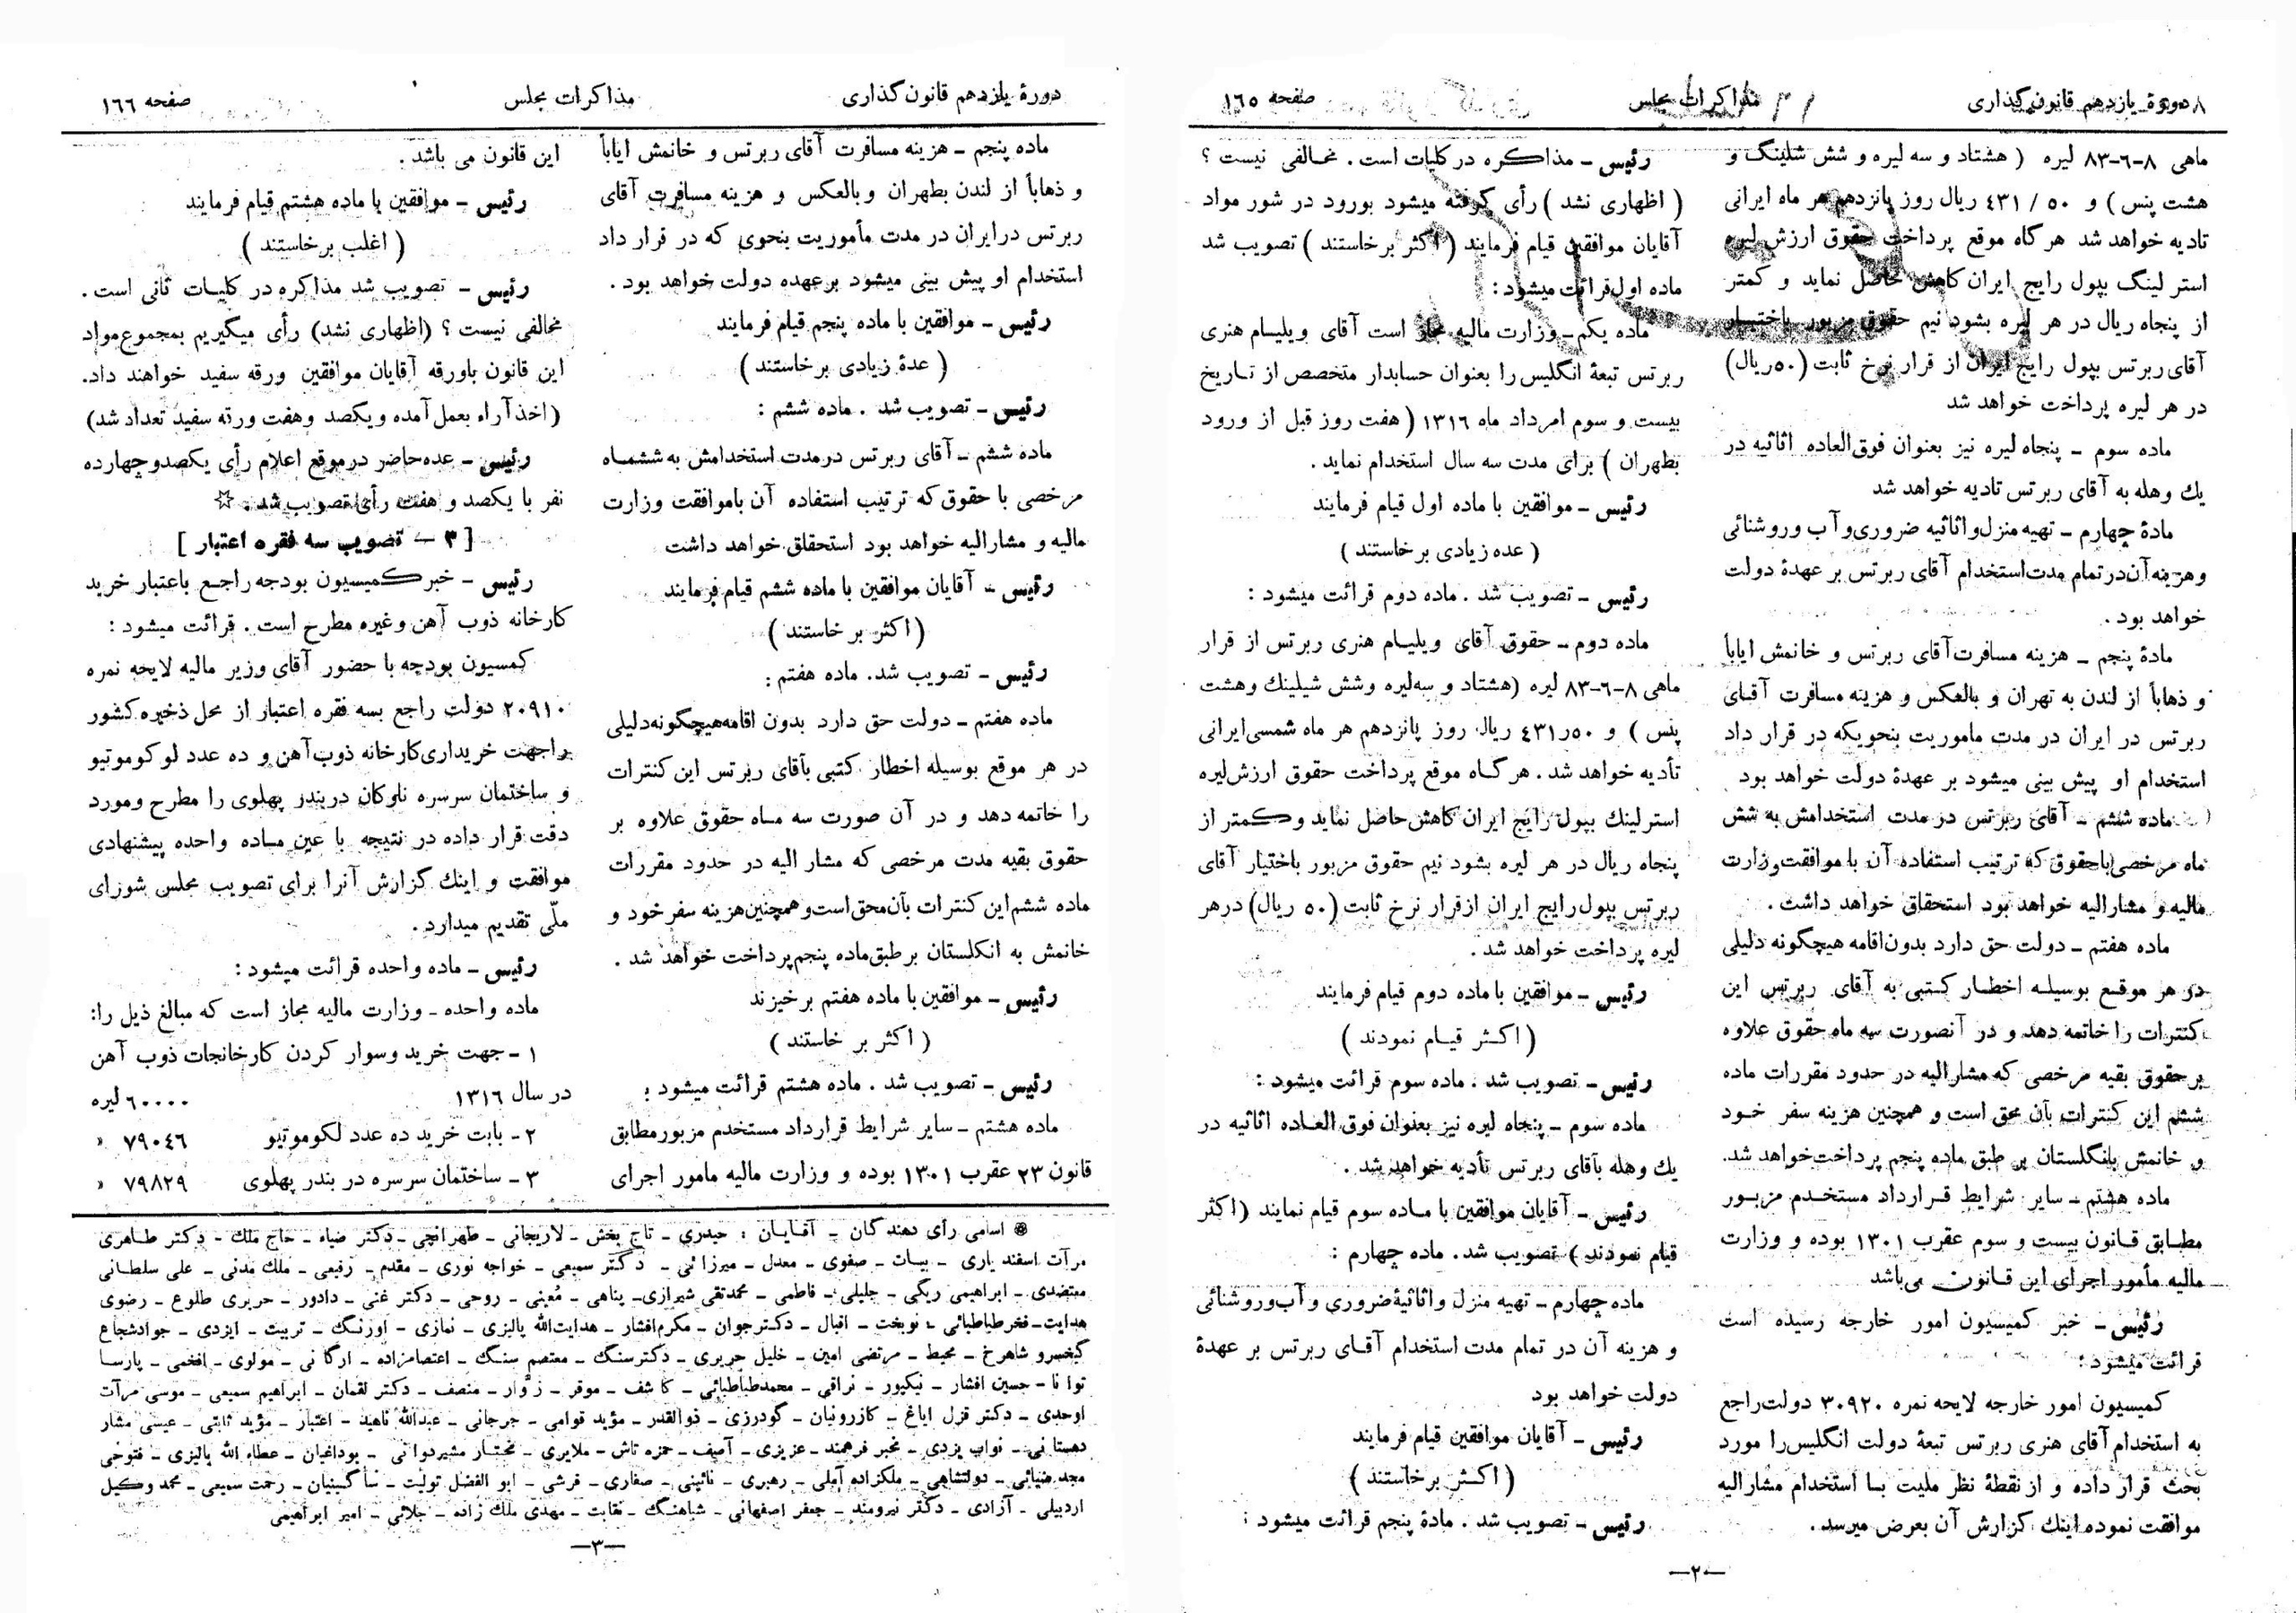 دورهٔ یازدهم قانون‌گذاری
مذاکرات مجلس
صفحه ۱٦٥
ماهی ۸-٦-۸۳ لیره ( هشتاد و سه لیره و شش شلینگ و
هشت پنس ) و ٥۰ / ٤۳۱ ریال روز پانزدهم هر ماه ایرانی
تادیه خواهد شد هرگاه موقع پرداخت حقوق ارزش لیره
استر لینگ بپول رایج ایران کاهش حاصل نماید و کمتر
از پنجاه ریال در هر لیره بشود نیم حقوق مزبور باختیار
آقای ربرتس بپول رایج ایران از قرار نرخ ثابت (٥۰ریال)
در هر لیره پرداخت خواهد شد
ماده سوم - پنجاه لیره نیز بعنوان فوق‌العاده اثاثیه در
یك وهله به آقای ربرتس تادیه خواهد شد
مادهٔ چهارم - تهیه منزل و اثاثیه ضروری و آب و روشنائی
و هزینه آن در تمام مدت استخدام آقای ربرتس بر عهدهٔ دولت
خواهد بود .
مادهٔ پنجم - هزینه مسافرت آقای ربرتس و خانمش ایاباً
و ذهاباً از لندن به تهران و بالعکس و هزینه مسافرت آقای
ربرتس در ایران در مدت ماموریت بنحویکه در قرار داد
استخدام او پیش بینی میشود بر عهدهٔ دولت خواهد بود
ماده ششم - آقای ربرتس در مدت استخدامش به شش
ماه مرخصی با حقوق که ترتیب استفاده آن با موافقت وزارت
مالیه و مشارالیه خواهد بود استحقاق خواهد داشت .
ماده هفتم - دولت حق دارد بدون اقامه هیچگونه دلیلی
در هر موقع بوسیله اخطار کتبی به آقای ربرتس این
کنترات را خاتمه دهد و در آنصورت سه ماه حقوق علاوه
بر حقوق بقیه مرخصی که مشارالیه در حدود مقررات ماده
ششم این کنترات بآن محق است و همچنین هزینه سفر خود
و خانمش بانگلستان بر طبق ماده پنجم پرداخت خواهد شد.
ماده هشتم - سایر شرایط قرارداد مستخدم مزبور
مطابق قانون بیست و سوم عقرب ۱۳۰۱ بوده و وزارت
مالیه مأمور اجرای این قانون می‌باشد
رئیس - خبر کمیسیون امور خارجه رسیده است
قرائت میشود :
کمیسیون امور خارجه لایحه نمره ۳۰۹۲۰ دولت راجع
به استخدام آقای هنری ربرتس تبعهٔ دولت انگلیس را مورد
بحث قرار داده و از نقطهٔ نظر ملیت با استخدام مشارالیه
موافقت نموده اینك گزارش آن بعرض میرسد.
رئیس - مذاکره در کلیات است . مخالفی نیست ؟
( اظهاری نشد ) رأی گرفته میشود بورود در شور مواد
آقایان موافقین قیام فرمایند ( اکثر برخاستند ) تصویب شد
ماده اول قرائت میشود :
ماده یکم - وزارت مالیه مجاز است آقای ویلیام هنری
ربرتس تبعهٔ انگلیس را بعنوان حسابدار متخصص از تاریخ
بیست و سوم امرداد ماه ۱۳۱٦ ( هفت روز قبل از ورود
بطهران ) برای مدت سه سال استخدام نماید .
رئیس - موافقین با ماده اول قیام فرمایند
( عده زیادی برخاستند )
رئیس - تصویب شد . ماده دوم قرائت میشود :
ماده دوم - حقوق آقای ویلیام هنری ربرتس از قرار
ماهی ۸-٦-۸۳ لیره (هشتاد و سه‌لیره وشش شیلینك وهشت
پنس ) و ٥۰ر٤۳۱ ریال روز پانزدهم هر ماه شمسی ایرانی
تأدیه خواهد شد . هرگاه موقع پرداخت حقوق ارزش لیره
استرلینك بپول رایج ایران کاهش حاصل نماید و کمتر از
پنجاه ریال در هر لیره بشود نیم حقوق مزبور باختیار آقای
ربرتس بپول رایج ایران از قرار نرخ ثابت (٥۰ ریال) در هر
لیره پرداخت خواهد شد .
رئیس - موافقین با ماده دوم قیام فرمایند
( اکثر قیام نمودند )
رئیس - تصویب شد . ماده سوم قرائت میشود :
ماده سوم - پنجاه لیره نیز بعنوان فوق العاده اثاثیه در
یك وهله بآقای ربرتس تأدیه خواهد شد .
رئیس - آقایان موافقین با ماده سوم قیام نمایند (اکثر
قیام نمودند ) تصویب شد . ماده چهارم :
ماده چهارم - تهیه منزل و اثاثیهٔ ضروری و آب و روشنائی
و هزینه آن در تمام مدت استخدام آقای ربرتس بر عهدهٔ
دولت خواهد بود
رئیس - آقایان موافقین قیام فرمایند
( اکثر برخاستند )
رئیس - تصویب شد . مادهٔ پنجم قرائت میشود :
-۲-
دورهٔ یازدهم قانون‌گذاری
مذاکرات مجلس
صفحه ۱٦٦
ماده پنجم - هزینه مسافرت آقای ربرتس و خانمش ایاباً
و ذهاباً از لندن بطهران و بالعکس و هزینه مسافرت آقای
ربرتس در ایران در مدت مأموریت بنحوی که در قرار داد
استخدام او پیش بینی میشود برعهده دولت خواهد بود .
رئیس - موافقین با ماده پنجم قیام فرمایند
( عدهٔ زیادی برخاستند )
رئیس - تصویب شد . ماده ششم :
ماده ششم - آقای ربرتس در مدت استخدامش به ششماه
مرخصی با حقوق که ترتیب استفاده آن باموافقت وزارت
مالیه و مشارالیه خواهد بود استحقاق خواهد داشت
رئیس - آقایان موافقین با ماده ششم قیام فرمایند
( اکثر بر خاستند )
رئیس - تصویب شد. ماده هفتم :
ماده هفتم - دولت حق دارد بدون اقامه هیچگونه دلیلی
در هر موقع بوسیله اخطار کتبی بآقای ربرتس این کنترات
را خاتمه دهد و در آن صورت سه ماه حقوق علاوه بر
حقوق بقیه مدت مرخصی که مشار الیه در حدود مقررات
ماده ششم این کنترات بآن محق است و همچنین هزینه سفر خود و
خانمش به انگلستان بر طبق ماده پنجم پرداخت خواهد شد .
رئیس - موافقین با ماده هفتم برخیزند
( اکثر بر خاستند )
رئیس - تصویب شد . ماده هشتم قرائت میشود :
ماده هشتم - سایر شرایط قرارداد مستخدم مزبور مطابق
قانون ۲۳ عقرب ۱۳۰۱ بوده و وزارت مالیه مامور اجرای
این قانون می باشد .
رئیس - موافقین با ماده هشتم قیام فرمایند
( اغلب برخاستند )
رئیس - تصویب شد مذاکره در کلیات ثانی است .
مخالفی نیست ؟ (اظهاری نشد) رأی میگیریم بمجموع مواد
این قانون باورقه آقایان موافقین ورقه سفید خواهند داد.
(اخذ آراء بعمل آمده و یکصد وهفت ورقه سفید تعداد شد)
رئیس - عده حاضر در موقع اعلام رأی یکصد و چهارده
نفر با یکصد و هفت رأی تصویب شد . ☆
[ ۳ - تصویب سه فقره اعتبار ]
رئیس - خبر کمیسیون بودجه راجع باعتبار خرید
کارخانه ذوب آهن و غیره مطرح است . قرائت میشود :
کمسیون بودجه با حضور آقای وزیر مالیه لایحه نمره
۲۰۹۱۰ دولت راجع بسه فقره اعتبار از محل ذخیره کشور
راجهت خریداری کارخانه ذوب آهن و ده عدد لوکوموتیو
و ساختمان سرسره ناوکان در بندر پهلوی را مطرح و مورد
دقت قرار داده در نتیجه با عین ماده واحده پیشنهادی
موافقت و اینك گزارش آنرا برای تصویب مجلس شورای
ملّی تقدیم میدارد .
رئیس - ماده واحده قرائت میشود :
ماده واحده - وزارت مالیه مجاز است که مبالغ ذیل را:
۱ - جهت خرید و سوار کردن کارخانجات ذوب آهن
در سال ۱۳۱٦ ٦۰۰۰۰ لیره
۲ - بابت خرید ده عدد لکوموتیو ۷۹۰٤٦ «
۳ - ساختمان سرسره در بندر پهلوی ۷۹۸۲۹ «
* اسامی رأی دهندگان - آقایان : حیدری - تاج بخش - لاریجانی - طهرانچی - دکتر ضیاء - حاج ملك - دکتر طاهری
مرآت اسفندیاری - بیات - صفوی - معدل - میرزائی - دکتر سمیعی - خواجه نوری - مقدم - رفیعی - ملك مدنی - علی سلطانی
معتضدی - ابراهیمی ریگی - جلیلی - فاطمی - محمدتقی شیرازی - پناهی - مُعینی - روحی - دکتر غنی - دادور - حریری طلوع - رضوی
هدایت - فخرطباطبائی - نوبخت - اقبال - دکترجوان - مکرم افشار - هدایت‌الله پالیزی - نمازی - اورنگ - تربیت - ایزدی - جوادشجاع
کیخسرو شاهرخ - محیط - مرتضی امین - خلیل حریری - دکترسنگ - معتصم سنگ - اعتصام‌زاده - ارگانی - مولوی - افخمی - پارسا
توانا - حسین افشار - نیکپور - نراقی - محمدطباطبائی - کاشف - موقر - زوّار - منصف - دکتر لقمان - ابراهیم سمیعی - موسی مرآت
اوحدی - دکتر قزل ایاغ - کازرونیان - گودرزی - ذوالقدر - مؤید قوامی - جرجانی - عبدالله ناهید - اعتبار - مؤید ثابتی - عیسی مشار
دهستانی - نواب یزدی - مخبر فرهمند - عزیزی - آصف - حمزه تاش - ملایری - مختار مشیردوانی - بوداغیان - عطاء الله پالیزی - فتوحی
مجد ضیائی - دولتشاهی - ملکزاده آملی - رهبری - نائینی - صفاری - قرشی - ابو الفضل تولیت - ساگینیان - رحمت سمیعی - محمد وکیل
اردبیلی - آزادی - دکتر نیرومند - جعفر اصفهانی - شباهنگ - نقابت - مهدی ملك زاده - جلائی - امیر ابراهیمی
-۳-